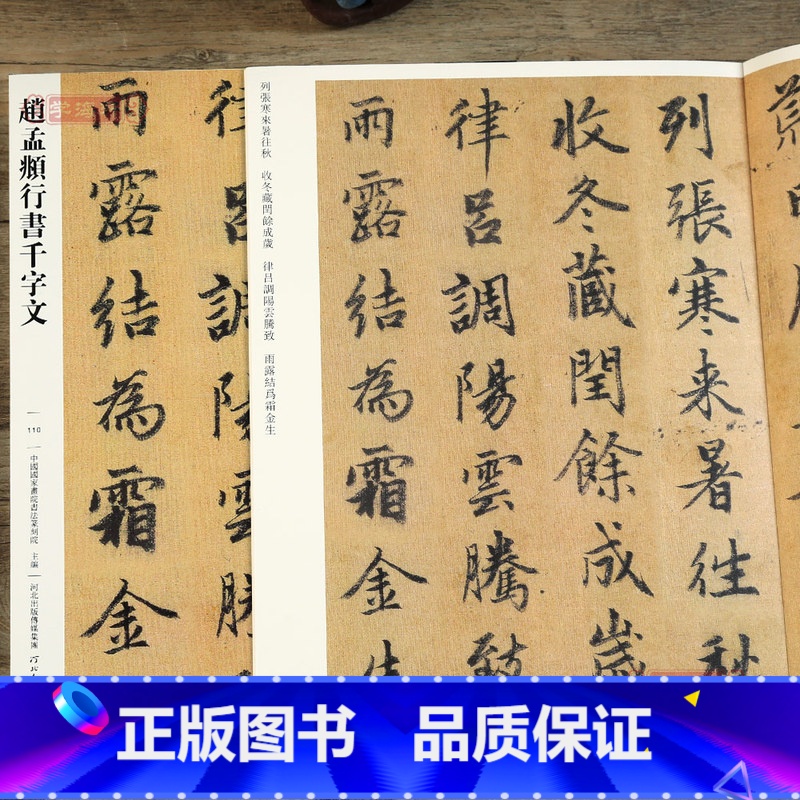 趙孟頫行書千字文
110
中國國家畫院書法篆刻院 主編
河北出版傳媒集團
雨露結為霜金
律呂調陽雲騰
列張寒來暑往秋 收冬藏閏餘成歲 律呂調陽雲騰致 雨露結爲霜金生
列張寒来暑往秋
收冬藏閏餘成歲
律呂調陽雲騰致
雨露結為霜金生
正版图书 品质保证